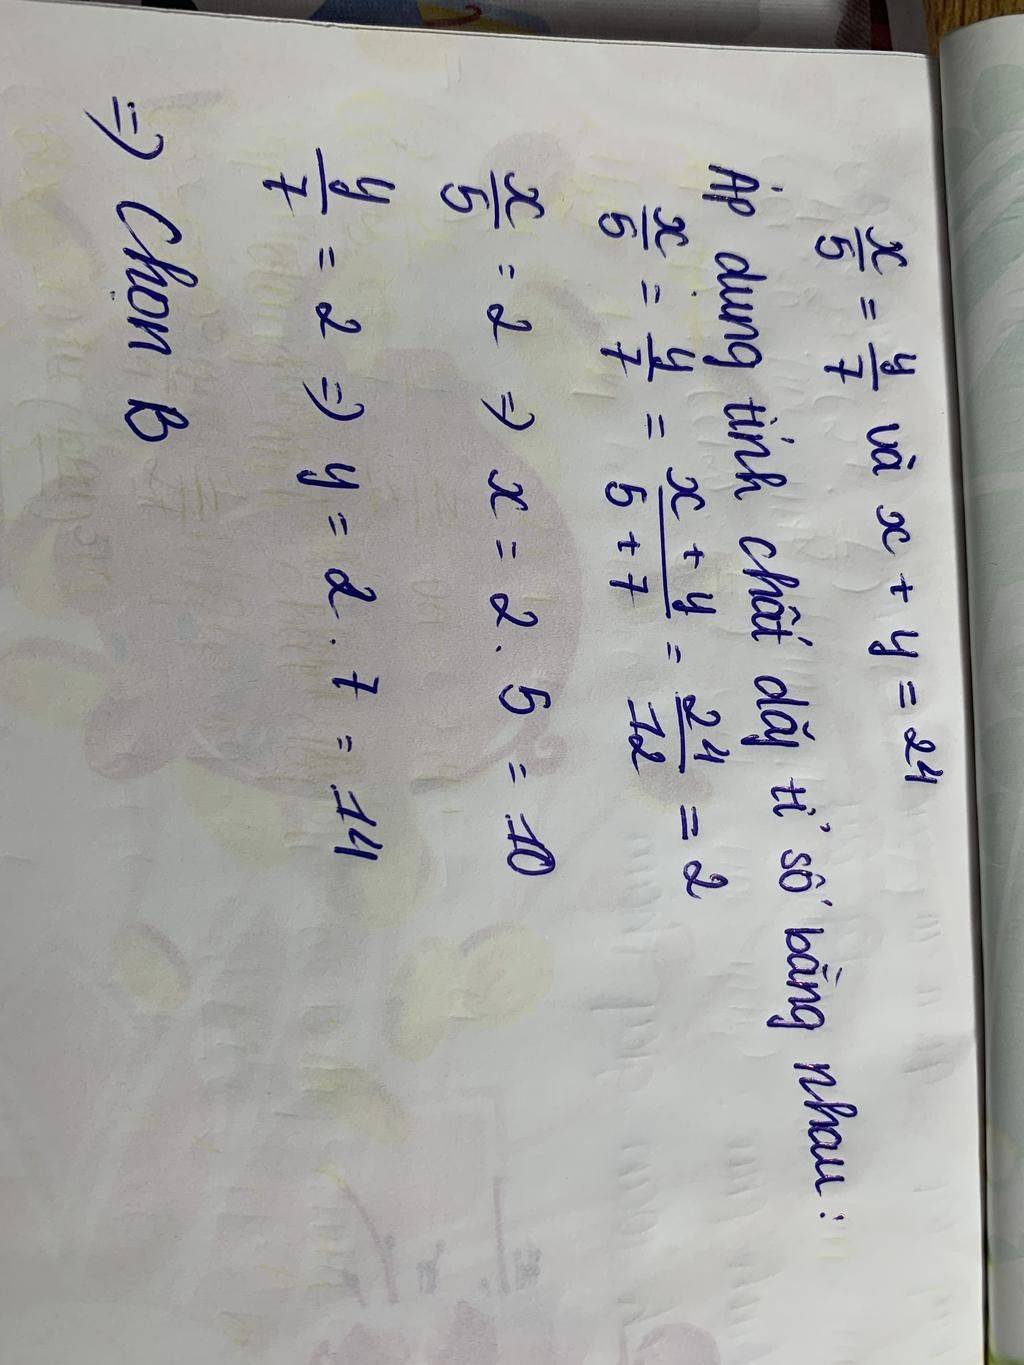 x/5 = y/7 và x + y = 24
Áp dụng tính chất dãy tỉ số bằng nhau :
x/5 = y/7 = (x + y)/(5 + 7) = 24/12 = 2
x/5 = 2 => x = 2 . 5 = 10
y/7 = 2 => y = 2 . 7 = 14
=> Chọn B